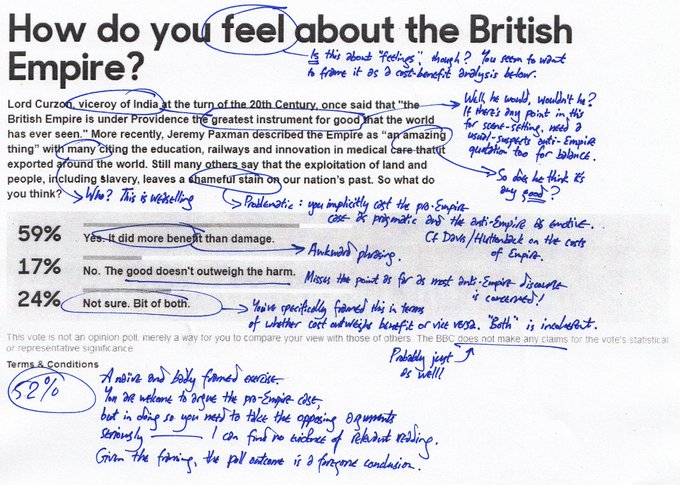 How do you feel about the British
Is this about "feelings" though? You seem to want
to frame it as a cost-benefit analysis below.
Empire?
Lord Curzon, viceroy of India at the turn of the 20th Century, once said that "the
British Empire is under Providence the greatest instrument for good that the world
has ever seen." More recently, Jeremy Paxman described the Empire as "an amazing
thing" with many citing the education, railways and innovation in medical care thatit
exported around the world. Still many others say that the exploitation of land and
people, including slavery, leaves a shameful stain on our nation's past. So what do
you think?
Well, he would, wouldn't he?
If there's any point in this
for scene-setting, need a
usual-suspects anti-Empire
quotation too for balance.
So does he think it's
any good?
Who? This is weaselling
Problematic: you implicitly cast the pro-Empire
case as pragmatic and the anti-Empire as emotive.
Cf Davis/Huttenback on the costs
of Empire.
59% Yes. It did more benefit than damage.
Awkward phrasing.
17% No. The good doesn't outweigh the harm.
Misses the point as far as most anti-Empire discourse
is concerned!
24% Not sure. Bit of both.
You've specifically framed this in terms
of whether cost outweighs benefit or vice versa. "Both" is incoherent.
This vote is not an opinion poll, merely a way for you to compare your view with those of others. The BBC does not make any claims for the vote's statistical
or representative significance
Probably just
as well!
Terms & Conditions
52%
A naive and badly framed exercise.
You are welcome to argue the pro-Empire case,
but in doing so you need to take the opposing arguments
seriously — I can find no evidence of relevant reading.
Given the framing, the poll outcome is a foregone conclusion.